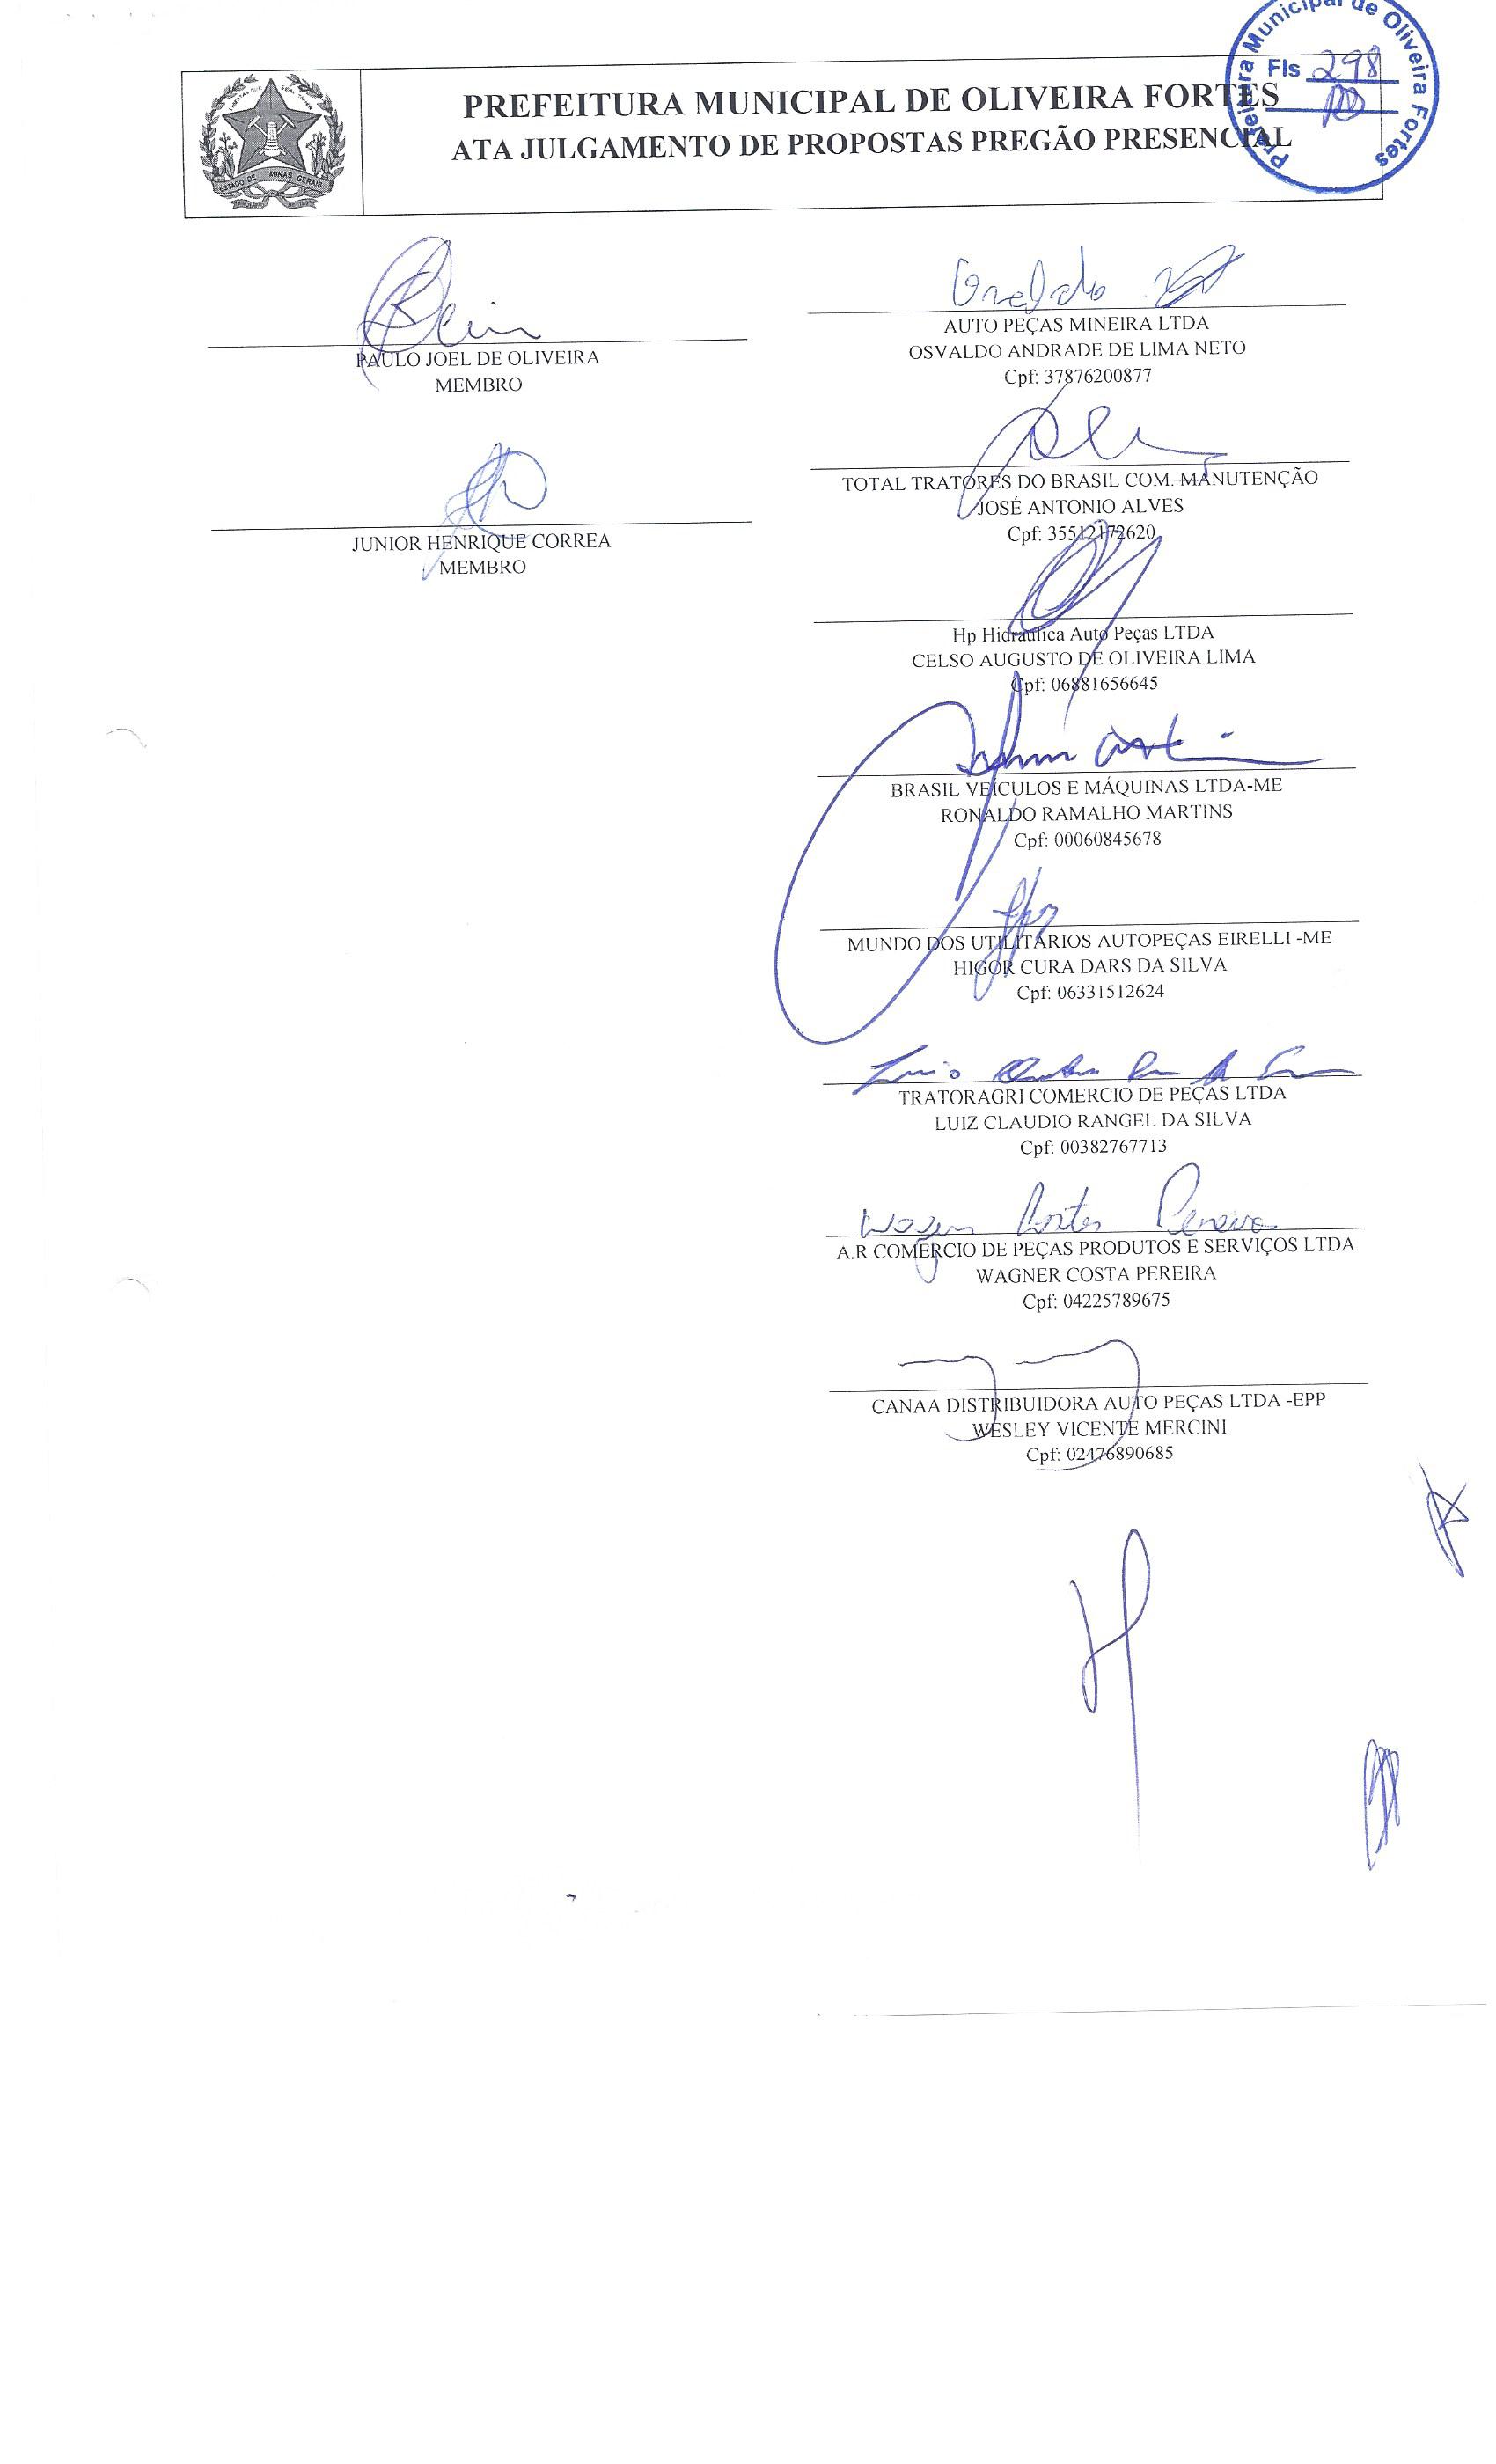 Prefeitura Municipal de Oliveira Fortes
Fls 298
PREFEITURA MUNICIPAL DE OLIVEIRA FORTES
ATA JULGAMENTO DE PROPOSTAS PREGÃO PRESENCIAL
ESTADO DE MINAS GERAIS
PAULO JOEL DE OLIVEIRA
MEMBRO
JUNIOR HENRIQUE CORREA
MEMBRO
AUTO PEÇAS MINEIRA LTDA
OSVALDO ANDRADE DE LIMA NETO
Cpf: 37876200877
TOTAL TRATORES DO BRASIL COM. MANUTENÇÃO
JOSÉ ANTONIO ALVES
Cpf: 35512172620
Hp Hidraulica Auto Peças LTDA
CELSO AUGUSTO DE OLIVEIRA LIMA
Cpf: 06881656645
BRASIL VEÍCULOS E MÁQUINAS LTDA-ME
RONALDO RAMALHO MARTINS
Cpf: 00060845678
MUNDO DOS UTILITÁRIOS AUTOPEÇAS EIRELLI -ME
HIGOR CURA DARS DA SILVA
Cpf: 06331512624
TRATORAGRI COMERCIO DE PEÇAS LTDA
LUIZ CLAUDIO RANGEL DA SILVA
Cpf: 00382767713
A.R COMERCIO DE PEÇAS PRODUTOS E SERVIÇOS LTDA
WAGNER COSTA PEREIRA
Cpf: 04225789675
CANAA DISTRIBUIDORA AUTO PEÇAS LTDA -EPP
WESLEY VICENTE MERCINI
Cpf: 02476890685